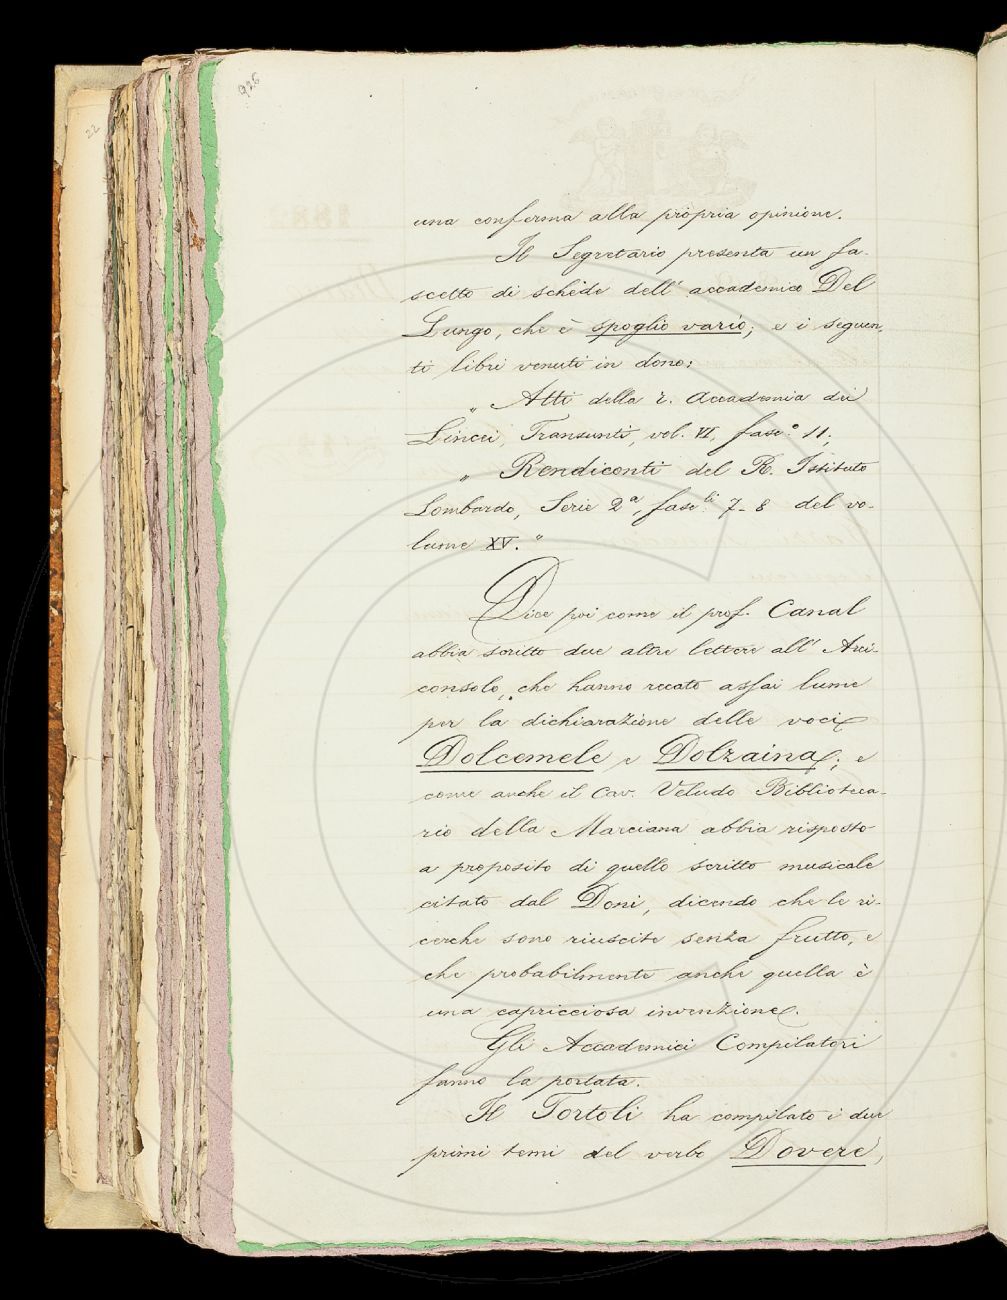 926
22
una conferma alla propria opinione.
Il Segretario presenta un fa-
scetto di schede dell' accademico Del
Lungo, che è spoglio vario; e i seguen-
ti libri venuti in dono:
„ Atti della r. Accademia dei
Lincei, Transunti, vol. VI, fasc.º 11;
„ Rendiconti del R. Istituto
Lombardo, Serie 2ª, fasc.li 7-8 del vo-
lume XV. "
Dice poi come il prof. Canal
abbia scritto due altre lettere all' Arci-
consolo, che hanno recato assai lume
per la dichiarazione delle voci
Dolcemele e Dolzaina; e
come anche il Cav. Veludo Biblioteca-
rio della Marciana abbia risposto
a proposito di quello scritto musicale
citato dal Doni, dicendo che le ri-
cerche sono riuscite senza frutto, e
che probabilmente anche quella è
una capricciosa invenzione.
Gli Accademici Compilatori
fanno la portata.
Il Tortoli ha compilato i due
primi temi del verbo Dovere,